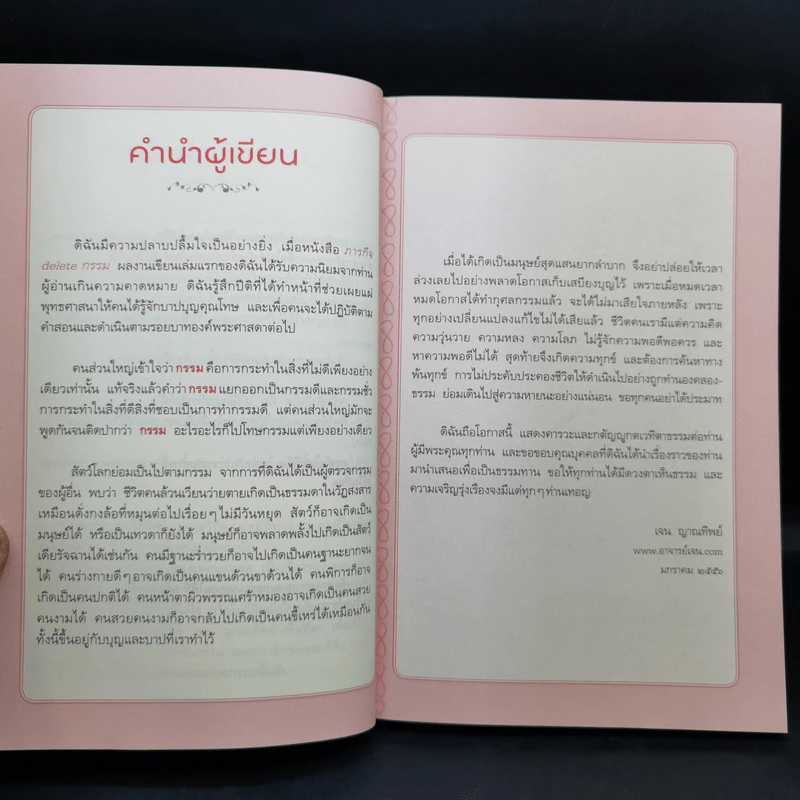 คำนำผู้เขียน
ดิฉันมีความปลาบปลื้มใจเป็นอย่างยิ่ง เมื่อหนังสือ ภารกิจ
delete กรรม ผลงานเขียนเล่มแรกของดิฉันได้รับความนิยมจากท่าน
ผู้อ่านเกินความคาดหมาย ดิฉันรู้สึกปีติที่ได้ทำหน้าที่ช่วยเผยแผ่
พุทธศาสนาให้คนได้รู้จักบาปบุญคุณโทษ และเพื่อคนจะได้ปฏิบัติตาม
คำสอนและดำเนินตามรอยบาทองค์พระศาสดาต่อไป
คนส่วนใหญ่เข้าใจว่า กรรม คือการกระทำในสิ่งที่ไม่ดีเพียงอย่าง
เดียวเท่านั้น แท้จริงแล้วคำว่า กรรม แยกออกเป็นกรรมดีและกรรมชั่ว
การกระทำในสิ่งที่ดีสิ่งที่ชอบเป็นการทำกรรมดี แต่คนส่วนใหญ่มักจะ
พูดกันจนติดปากว่า กรรม อะไรอะไรก็ไปโทษกรรมแต่เพียงอย่างเดียว
สัตว์โลกย่อมเป็นไปตามกรรม จากการที่ดิฉันได้เป็นผู้ตรวจกรรม
ของผู้อื่น พบว่า ชีวิตคนล้วนเวียนว่ายตายเกิดเป็นธรรมดาในวัฏสงสาร
เหมือนดั่งกงล้อที่หมุนต่อไปเรื่อยๆ ไม่มีวันหยุด สัตว์ก็อาจเกิดเป็น
มนุษย์ได้ หรือเป็นเทวดาก็ยังได้ มนุษย์ก็อาจพลาดพลั้งไปเกิดเป็นสัตว์
เดียรัจฉานได้เช่นกัน คนมีฐานะร่ำรวยก็อาจไปเกิดเป็นคนฐานะยากจน
ได้ คนร่างกายดีๆ อาจเกิดเป็นคนแขนด้วนขาด้วนได้ คนพิการก็อาจ
เกิดเป็นคนปกติได้ คนหน้าตาผิวพรรณเศร้าหมองอาจเกิดเป็นคนสวย
คนงามได้ คนสวยคนงามก็อาจกลับไปเกิดเป็นคนขี้เหร่ได้เหมือนกัน
ทั้งนี้ขึ้นอยู่กับบุญและบาปที่เราทำไว้
เมื่อได้เกิดเป็นมนุษย์สุดแสนยากลำบาก จึงอย่าปล่อยให้เวลา
ล่วงเลยไปอย่างพลาดโอกาสเก็บเสบียงบุญไว้ เพราะเมื่อหมดเวลา
หมดโอกาสได้ทำกุศลกรรมแล้ว จะได้ไม่มาเสียใจภายหลัง เพราะ
ทุกอย่างเปลี่ยนแปลงแก้ไขไม่ได้เสียแล้ว ชีวิตคนเรามีแต่ความคิด
ความวุ่นวาย ความหลง ความโลภ ไม่รู้จักความพอดีพอควร และ
หาความพอดีไม่ได้ สุดท้ายจึงเกิดความทุกข์ และต้องการค้นหาทาง
พ้นทุกข์ การไม่ประคับประคองชีวิตให้ดำเนินไปอย่างถูกทำนองคลอง-
ธรรม ย่อมเดินไปสู่ความหายนะอย่างแน่นอน ขอทุกคนอย่าได้ประมาท
ดิฉันถือโอกาสนี้ แสดงคารวะและกตัญญูกตเวทิตาธรรมต่อท่าน
ผู้มีพระคุณทุกท่าน และขอขอบคุณบุคคลที่ดิฉันได้นำเรื่องราวของท่าน
มานำเสนอเพื่อเป็นธรรมทาน ขอให้ทุกท่านได้มีดวงตาเห็นธรรม และ
ความเจริญรุ่งเรืองจงมีแด่ทุกๆ ท่านเทอญ
เจน ญาณทิพย์
www.อาจารย์เจน.com
มกราคม ๒๕๕๖